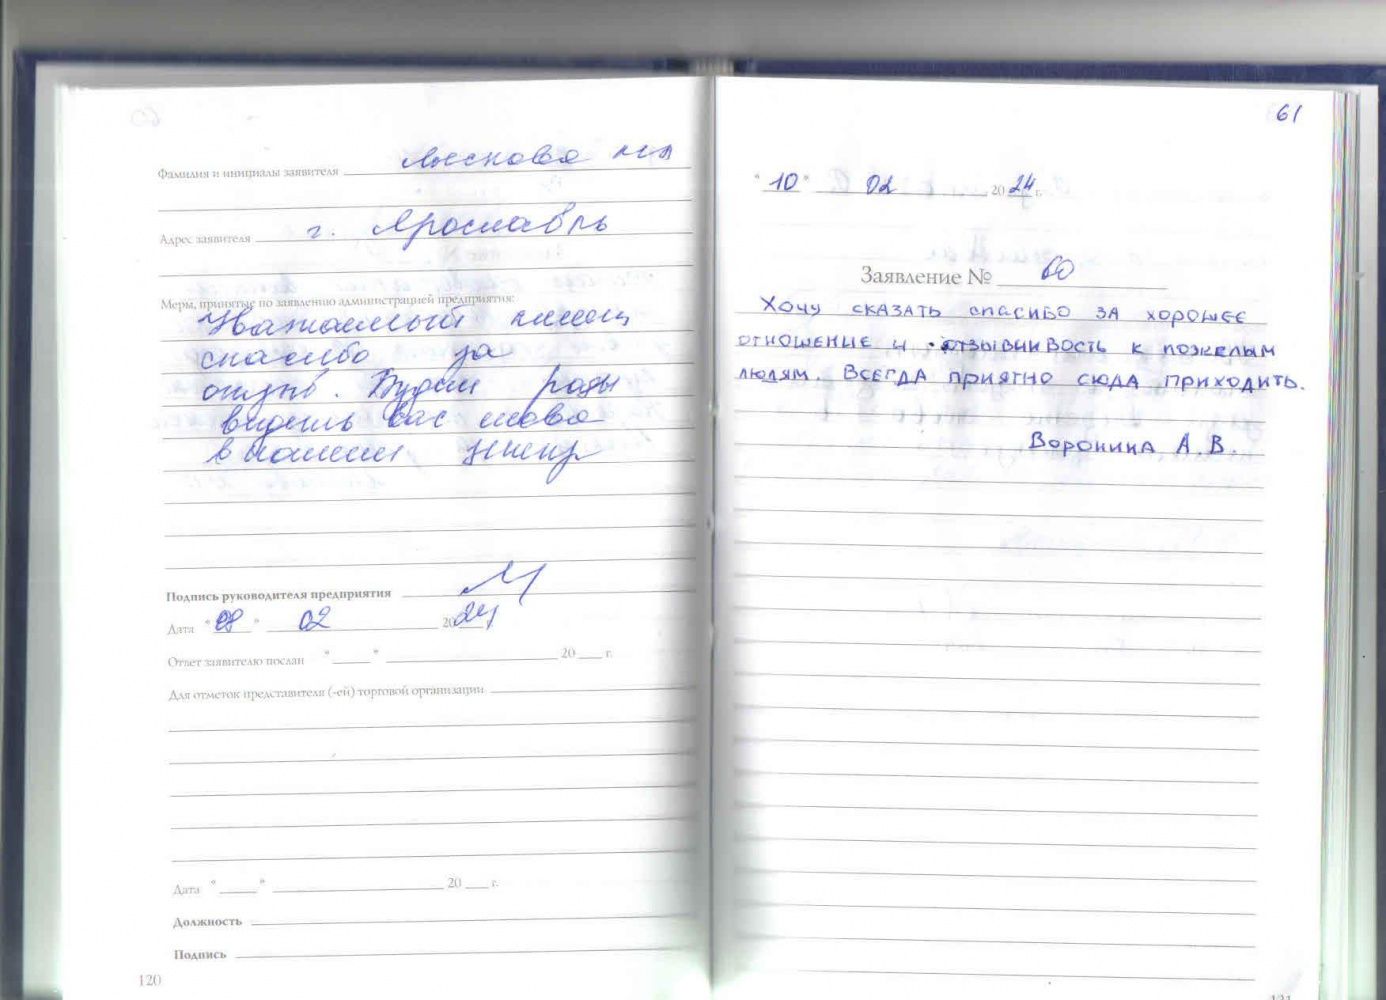 Фамилия и инициалы заявителя
Адрес заявителя г. Ярославль
Меры, принятые по заявлению администрацией предприятия:
Уважаемый клиент
спасибо за
отзыв. Будем рады
видеть вас снова
в нашем центре
Подпись руководителя предприятия
Дата "08" 02 2024
Ответ заявителю послан "____" ____ 20 ___ г.
Для отметок представителя (-ей) торговой организации
Дата "____" ____ 20 ___ г.
Должность
Подпись
120
61
"10" 02 2024 г.
Заявление № 60
Хочу сказать спасибо за хорошее
отношение и отзывчивость к пожелым
людям. Всегда приятно сюда приходить.
Воронина А.В.